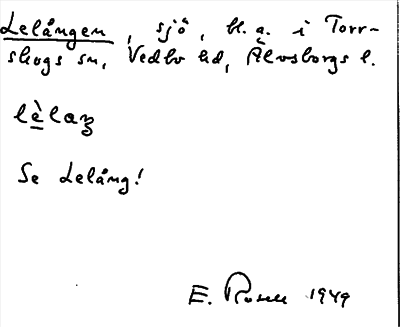 Lelången, sjö, bl. a. i Torr-
skogs sn, Vedbo hd, Älvsborgs l.
lèlaꞑ
Se Lelång!
E. Rosell 1949